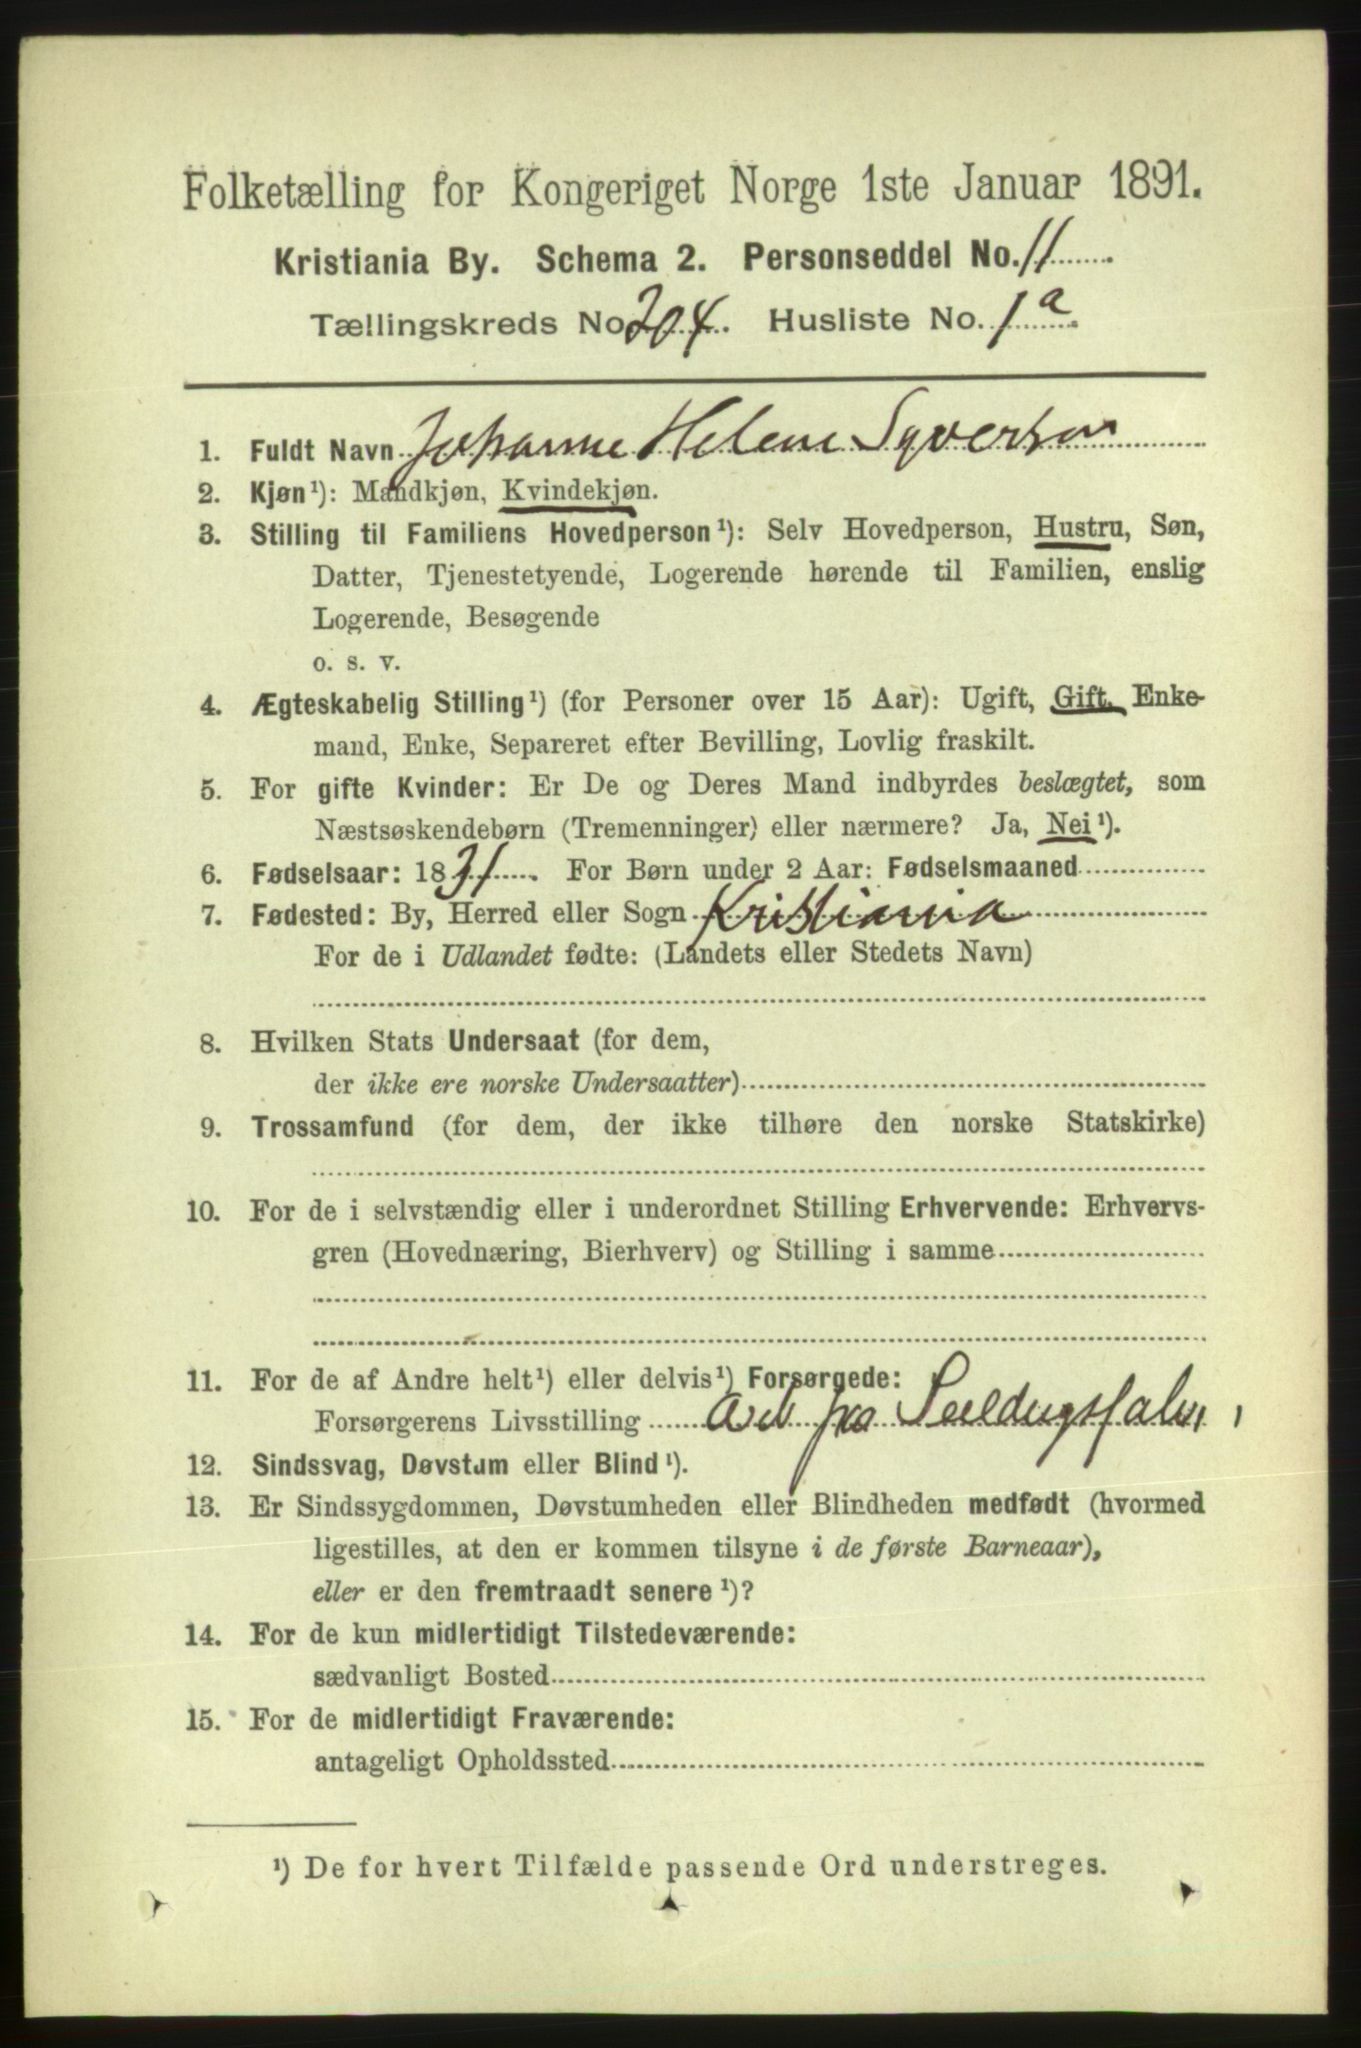 Folketælling for Kongeriget Norge 1ste Januar 1891.
Kristiania By. Schema 2. Personseddel No. 11
Tællingskreds No 204. Husliste No. 1a
1. Fuldt Navn Johanne Helene Syversen
2. Kjøn¹): Mandkjøn, Kvindekjøn.
3. Stilling til Familiens Hovedperson¹): Selv Hovedperson, Hustru, Søn,
Datter, Tjenestetyende, Logerende hørende til Familien, enslig
Logerende, Besøgende
o. s. v.
4. Ægteskabelig Stilling¹) (for Personer over 15 Aar): Ugift, Gift, Enke-
mand, Enke, Separeret efter Bevilling, Lovlig fraskilt.
5. For gifte Kvinder: Er De og Deres Mand indbyrdes beslægtet, som
Næstsøskendebørn (Tremenninger) eller nærmere? Ja, Nei¹).
6. Fødselsaar: 1831. For Børn under 2 Aar: Fødselsmaaned
7. Fødested: By, Herred eller Sogn Kristiania
For de i Udlandet fødte: (Landets eller Stedets Navn)
8. Hvilken Stats Undersaat (for dem,
der ikke ere norske Undersaatter)
9. Trossamfund (for dem, der ikke tilhøre den norske Statskirke)
10. For de i selvstændig eller i underordnet Stilling Erhvervende: Erhvervs-
gren (Hovednæring, Bierhverv) og Stilling i samme
11. For de af Andre helt¹) eller delvis¹) Forsørgede:
Forsørgerens Livsstilling
12. Sindssvag, Døvstum eller Blind¹).
13. Er Sindssygdommen, Døvstumheden eller Blindheden medfødt (hvormed
ligestilles, at den er kommen tilsyne i de første Barneaar),
eller er den fremtraadt senere¹)?
14. For de kun midlertidigt Tilstedeværende:
sædvanligt Bosted
15. For de midlertidigt Fraværende:
antageligt Opholdssted
¹) De for hvert Tilfælde passende Ord understreges.